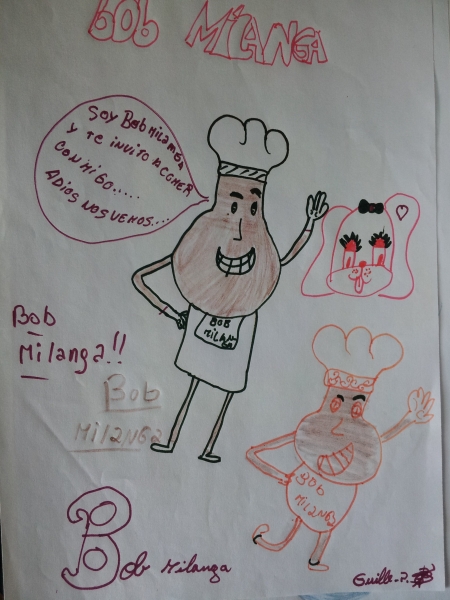 BOB MILANGA
SOY BOB MILANGA
Y TE INVITO A COMER
CONMIGO.....
ADIOS NOS VEMOS...
BOB
MILAN
GA
Bob
Milanga!!
Bob
Mil2NG2
BOB
MIL2NG2
Bob Milanga
Guille.P.